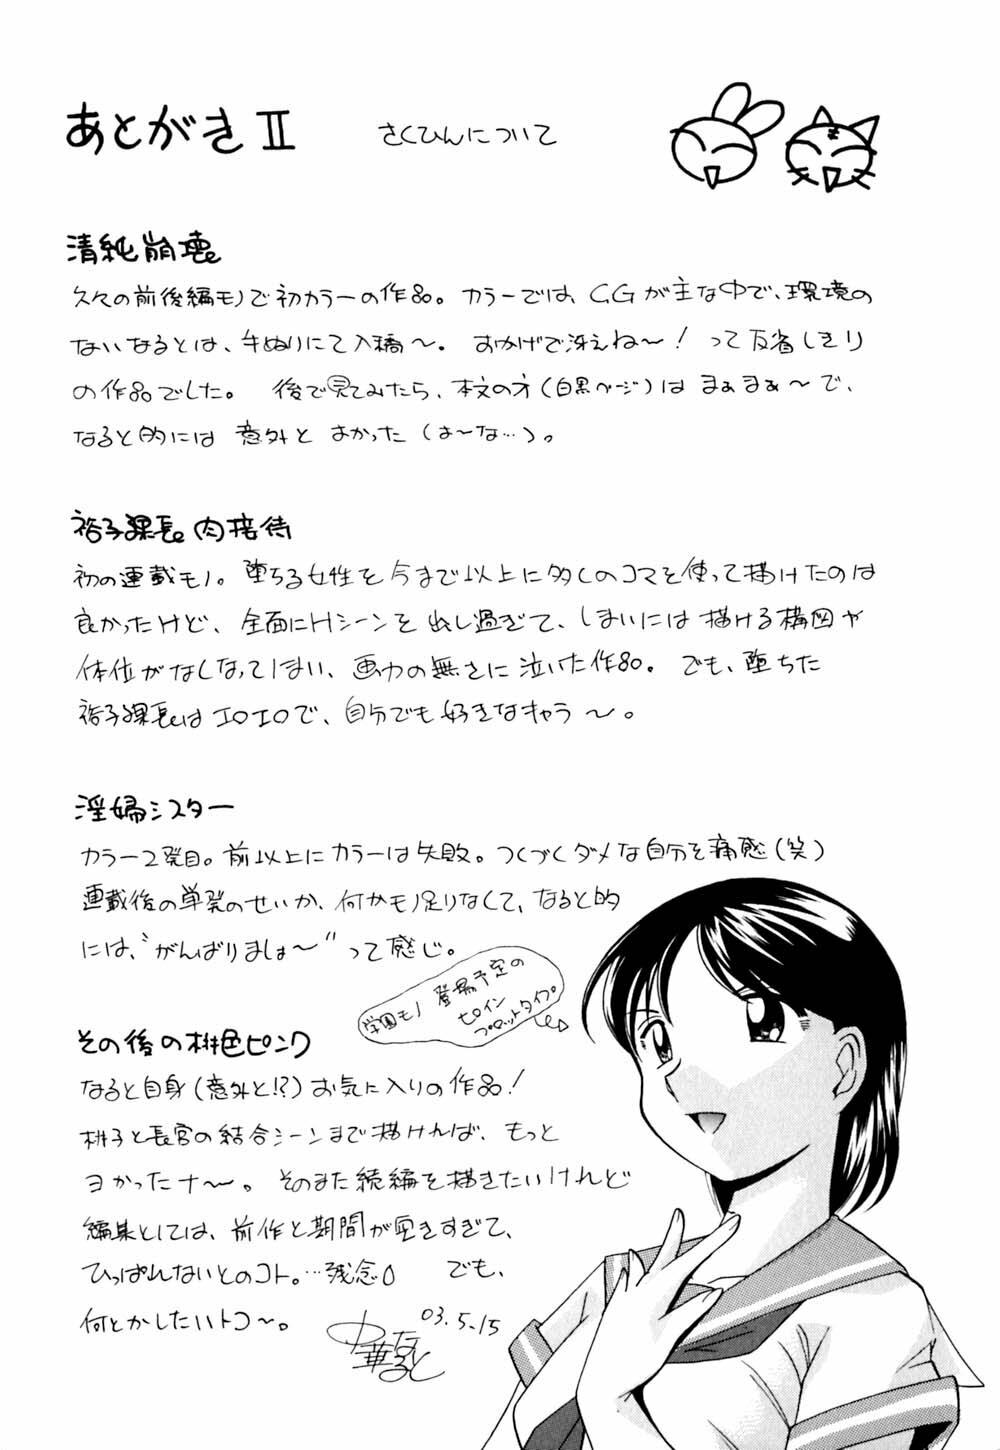 あとがきⅡ さくひんについて
清純崩壊。
久々の前後編モノで初カラーの作品。カラーでは、CGが主な中で、環境の
ないなるとは、手ぬりにて入稿〜。おかげで冴えね〜!って反省しきり
の作品でした。後で見てみたら、本文の方(白黒ページ)はまぁまぁ〜で、
なると的には意外とよかった(は〜な…)。
裕子課長。肉接待
初の連載モノ。堕ちる女性を今まで以上に多くのコマを使って描けたのは
良かったけど、全面にHシーンを出し過ぎて、しまいには描ける構図や
体位がなくなってしまい、画力の無さに泣いた作品。でも、堕ちた
裕子課長はエロエロで、自分でも好きなキャラ〜。
淫婦シスター
カラー2発目。前以上にカラーは失敗。つくづくダメな自分を痛感(笑)
連載後の単発のせいか、何かモノ足りなくて、なると的
には、"がんばりましょ〜"って感じ。
学園モノ登場予定の
ヒロイン
プロットタイプ。
その後の桃色ピンク
なると自身(意外と!?)お気に入りの作品!
桃子と長官の結合シーンまで描ければ、もっと
ヨかったナ〜。そのまた続編を描きたいけれど
編集としては、前作と期間が空きすぎて、
ひっぱれないとのコト。…残念。でも、
何とかしたいトコ〜。
03.5.15
中華なると